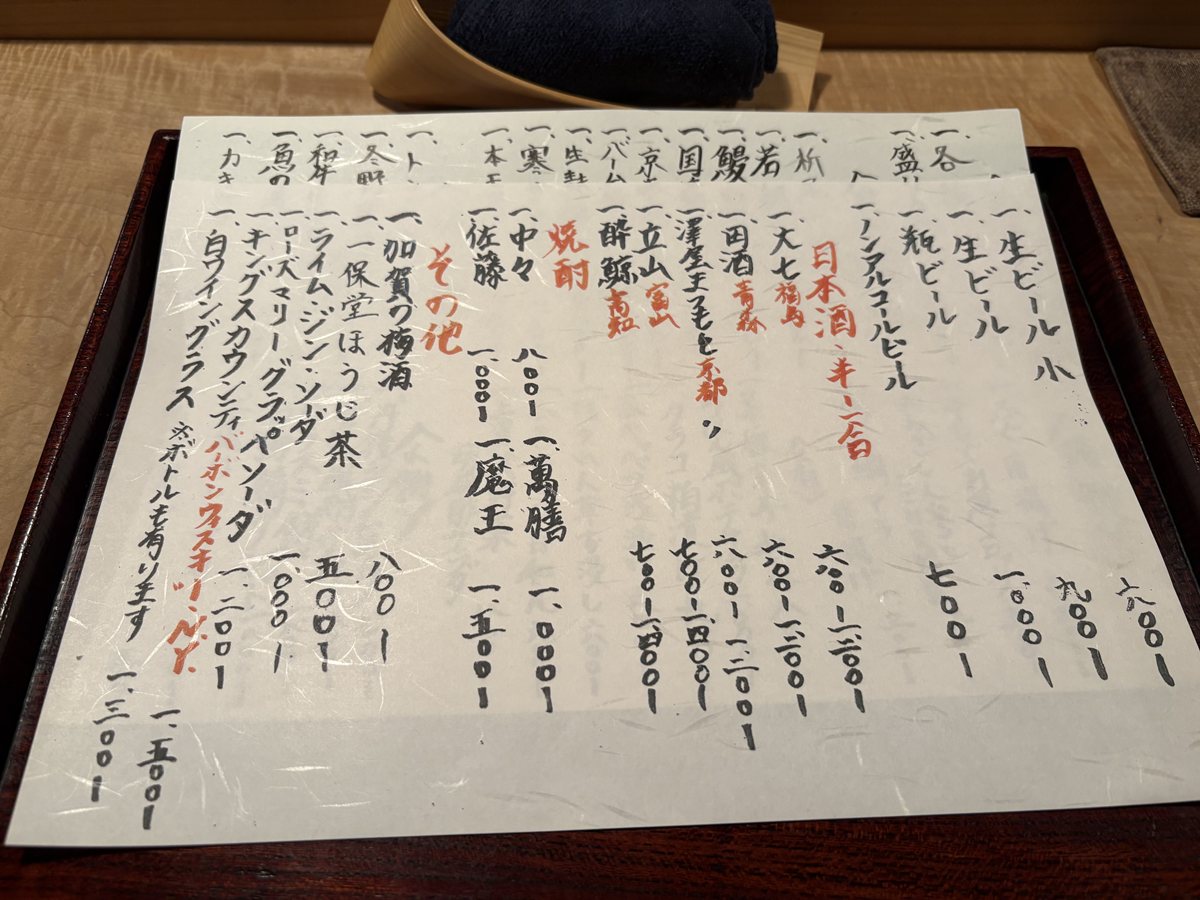 一、各
一、盛
一、
一、若
一、鰻
一、国
一、京
一、バーム
一、生
一、寒
一、本
一、ト
一、冬野
一、和牛
一、魚の
一、カキ
一、生ビール 小 六〇〇ー
一、生ビール 九〇〇ー
一、瓶ビール 一、〇〇〇ー
一、ノンアルコールビール 七〇〇ー
日本酒、半ー一合
一、大七 福島 六〇〇ー一、二〇〇ー
一、田酒 青森 六〇〇ー一、二〇〇ー
一、澤屋まつもと 京都 〃 六〇〇ー 一、二〇〇ー
一、立山 富山 七〇〇ー一、四〇〇ー
一、酔鯨 高知 七〇〇ー一、四〇〇ー
焼酎
一、中々 八〇〇ー 一、萬膳 一、〇〇〇ー
一、佐藤 一、〇〇〇ー 一、魔王 一、五〇〇ー
その他
一、加賀の梅酒 八〇〇ー
一、一保堂ほうじ茶 五〇〇ー
一、ライムジン・ソーダ 一、〇〇〇ー
一、ローズマリーグラッパソーダ 一、二〇〇ー
一、キングスカウンティ バーボンウィスキー N.Y. 一、五〇〇ー
一、白ワイングラス ※ボトルも有ります 一、三〇〇ー